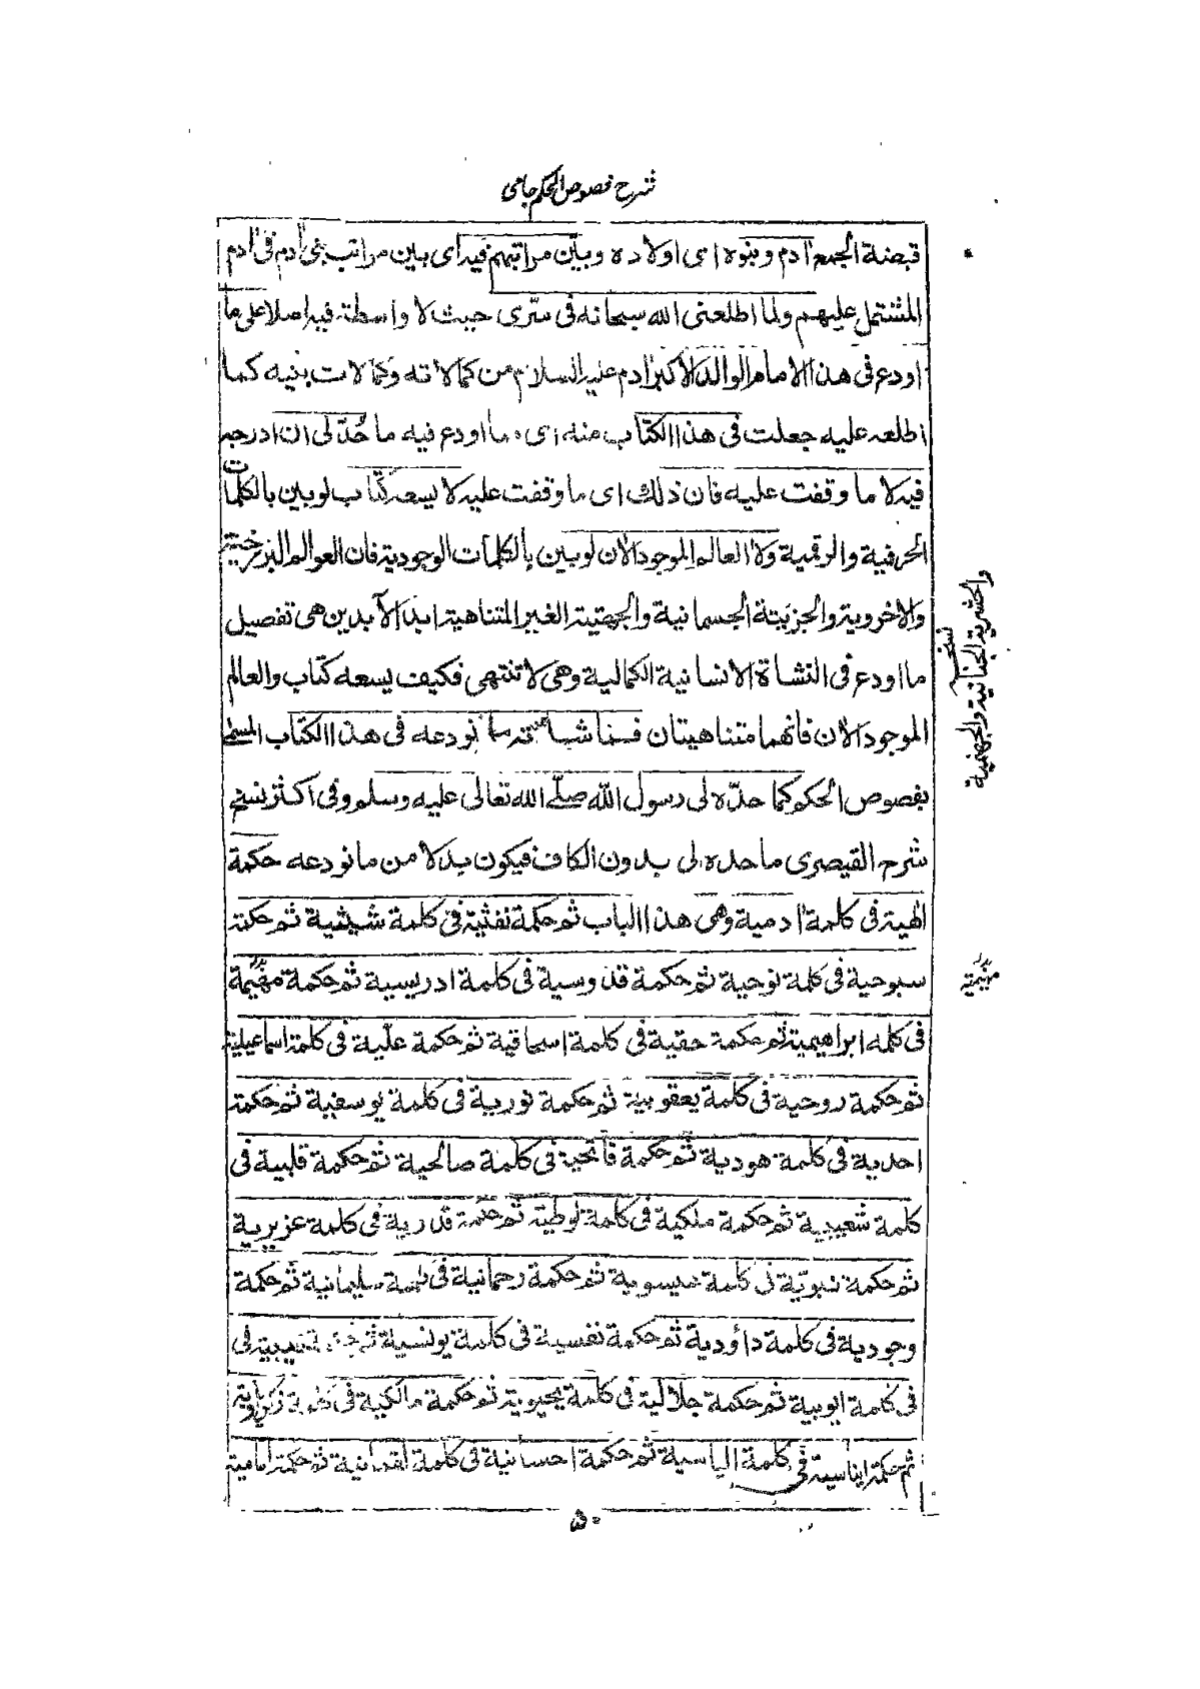 شرح فصوص الحكم جامى
قبضة الجمع آدم وبنوه اى اولاده وبيّن مراتبهم فيه اى بين مراتب بنى آدم فى آدم
المشتمل عليهم ولما اطلعنى الله سبحانه فى سرّى حيث لا واسطة فيه اصلا على ما
اودع فى هذا الامام الوالد الاكبر آدم عليه السلام من كمالاته وكمالات بنيه كما
اطلعه عليه جعلت فى هذا الكتاب منه اى مما اودع فيه ما حُدّ لى ان ادرجه
فيه لا ما وقفت عليه فان ذلك اى ما وقفت عليه لا يسعه كتاب لو بين بالكلمات
الحرفية والرقمية ولا العالم الموجود الان لو بين بالكلمات الوجودية فان العوالم البرزخية
والاخروية والجزئية الجسمانية والجهتية الغير المتناهية ابد الآبدين هى تفصيل
ما اودع فى النشاة الانسانية الكمالية وهى لا تنتهى فكيف يسعه كتاب والعالم
الموجود الان فانهما متناهيتان فمما شهدته مما نودعه فى هذا الكتاب المسمى
بفصوص الحكم كما حدّه لى رسول الله صلّى الله تعالى عليه وسلم وفى اكثر نسخ
شرح القيصرى ما حده لى بدون الكاف فيكون بدلا من ما نودعه حكمة
الٰهية فى كلمة آدمية وهى هذا الباب ثم حكمة نفثية فى كلمة شيثية ثم حكمة
سبوحية فى كلمة نوحية ثم حكمة قدوسية فى كلمة ادريسية ثم حكمة مهيّمة
فى كلمه ابراهيمية ثم حكمة حقية فى كلمة اسحاقية ثم حكمة عليّة فى كلمة اسماعيلية
ثم حكمة روحية فى كلمة يعقوبية ثم حكمة نورية فى كلمة يوسفية ثم حكمة
احدية فى كلمة هودية ثم حكمة فاتحية فى كلمة صالحية ثم حكمة قلبية فى
كلمة شعيبية ثم حكمة ملكية فى كلمة لوطية ثم حكمة قدرية فى كلمة عزيرية
ثم حكمة نبويّة فى كلمة عيسوية ثم حكمة رحمانية فى كلمة سليمانية ثم حكمة
وجودية فى كلمة داؤدية ثم حكمة نفسية فى كلمة يونسية ثم حكمة غيبية فى
فى كلمة ايوبية ثم حكمة جلالية فى كلمة يحيوية ثم حكمة مالكية فى كلمة زكرياوية
ثم حكمة ايناسية فى كلمة الياسية ثم حكمة احسانية فى كلمة لقمانية ثم حكمة امامية
والحشرية الجنانية والجهنمية
نسخه
مهيمية
٥٠